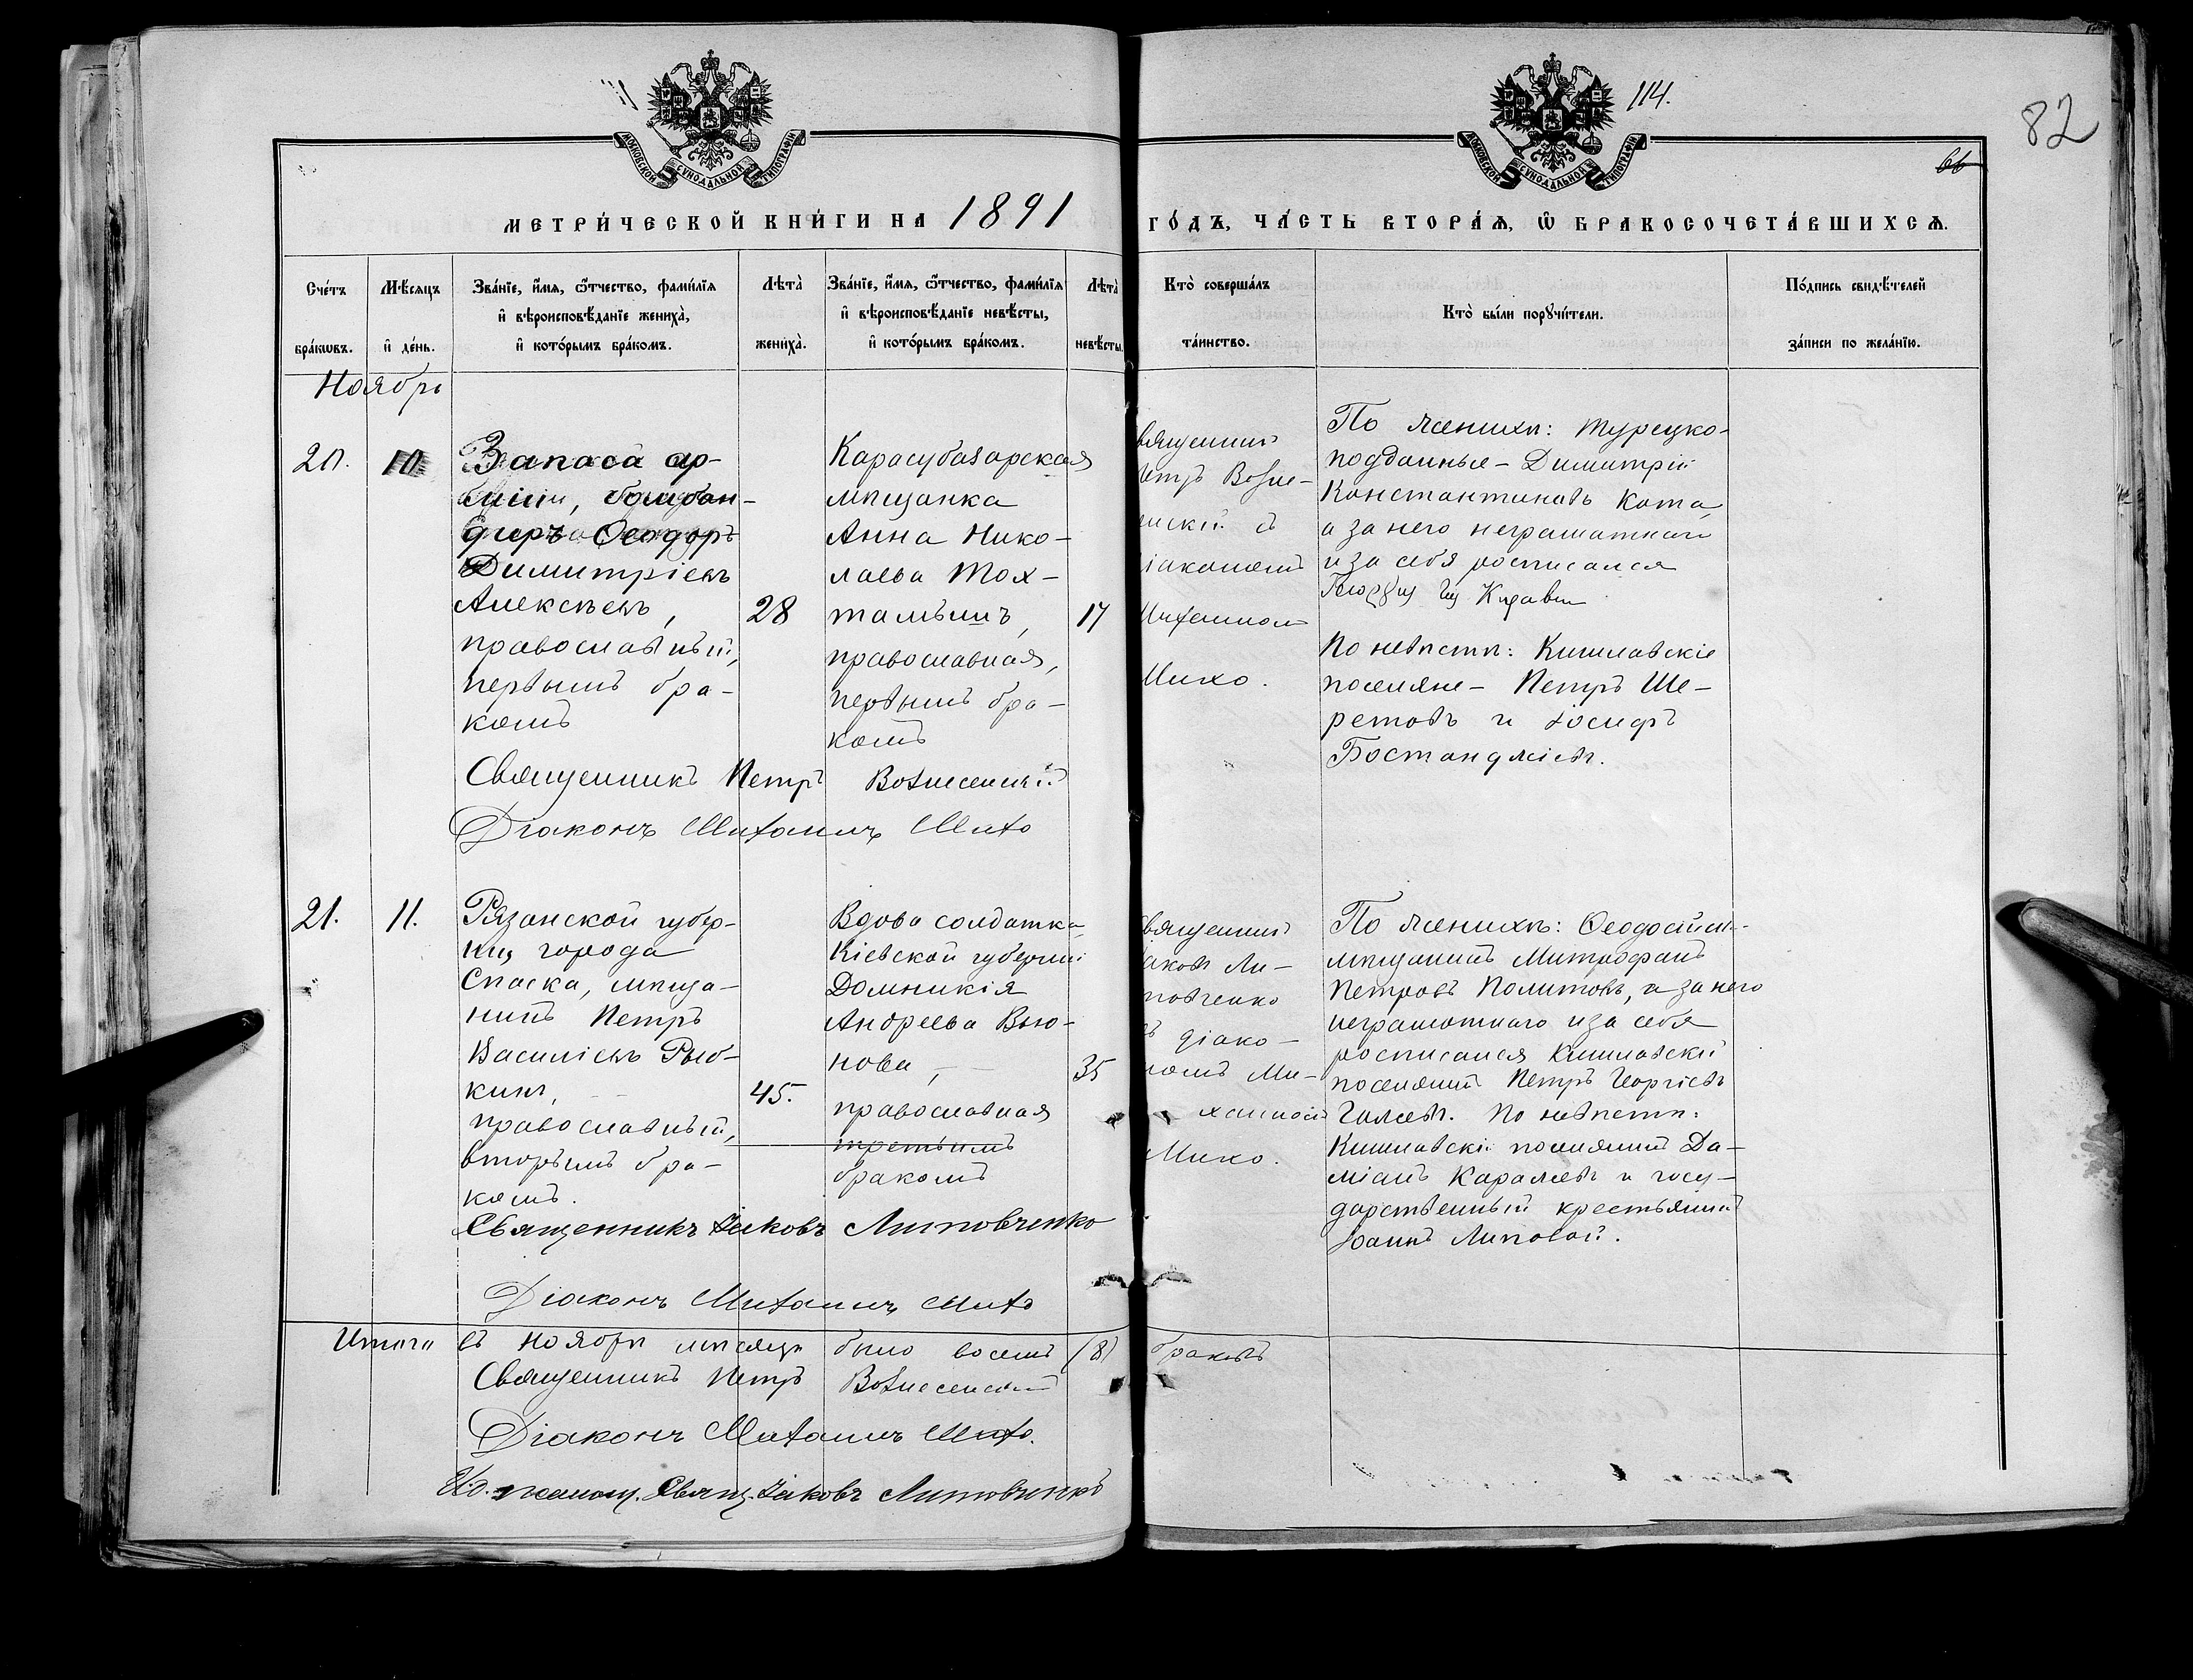 114.
82
66
МОСКОВСКОЙ СѴНОДАЛЬНОЙ ТИПОГРАФІИ
МОСКОВСКОЙ СѴНОДАЛЬНОЙ ТИПОГРАФІИ
МЕТРИ́ЧЕСКОЙ КНИ́ГИ НА 1891 ГО́ДЪ, ЧА́СТЬ ВТОРА́Ѧ, Ѽ БРАКОСОЧЕТА́ВШИХСѦ.
Сче́тъ
бра́кѡвъ.
Мѣ́сѧцъ
и҆ де́нь.
Зва́нїе, и҆́мѧ, ѻ҆́тчество, фами́лїѧ
и҆ вѣроисповѣ́данїе жениха̀,
и҆ кото́рымъ бра́комъ.
Лѣта̀
жениха̀.
Зва́нїе, и҆́мѧ, ѻ҆́тчество, фами́лїѧ
и҆ вѣроисповѣ́данїе невѣ́сты,
и҆ кото́рымъ бра́комъ.
Лѣта̀
невѣ́сты
Кто̀ соверша́лъ
та́инство.
Кто̀ бы́ли порꙋчи́тели.
По́дпись свидѣ́телей
за́писи по жела́нїю.
Ноябрь
20.
10.
Запаса ар-
міи, бомбан-
диръ Ѳеодоръ
Димитріевъ
Алексѣевъ,
православный,
первымъ бра-
комъ
28
Карасубазарская
мѣщанка
Анна Нико-
лаева Тох-
тамышъ,
православная,
первымъ бра-
комъ
17
вященникъ
етръ Возне-
енскій съ
іакономъ
Михаиломъ
Михо.
По женихѣ: турецко-
подданные - Димитрій
Константиновъ Кота,
а за него неграмотнаго
и за себя росписался
По невѣстѣ: Кишлавскіе
поселяне - Петръ Ше-
ретовъ и Іосифъ
Бостанджіевъ.
Священникъ Петръ Вознесенскій
Діаконъ Михаилъ Михо
21.
11.
Рязанской губер-
ніи, города
Спаска, мѣща-
нинъ Петръ
Василіевъ Рыб-
кинъ,
православный,
вторымъ бра-
комъ.
45.
Вдова солдатка
Кіевской губерніи
Домникія
Андреева Вью-
нова,
православная
третьимъ
бракомъ
35
вященникъ
аковъ Ли-
повченко
ъ діако-
номъ Ми-
хаиломъ
Михо.
По женихѣ: Ѳеодосійск.
мѣщанинъ Митрофанъ
Петровъ Политовъ, а за него
неграмотнаго и за себя
росписался Кишлавскій
поселянинъ Петръ Георгіевъ
По невѣстѣ:
Кишлавскій поселянинъ Да-
міанъ Каражевъ и госу-
дарственный крестьянинъ
Іоаннъ Липовой.
Священникъ Іаковъ Липовченко
Діаконъ Михаилъ Михо
Итого въ ноябрѣ мѣсяцѣ было восемь (8) браковъ
Священникъ Петръ Вознесенскій
Діаконъ Михаилъ Михо.
И.д. псаломщ. Свящ. Іаковъ Липовченко